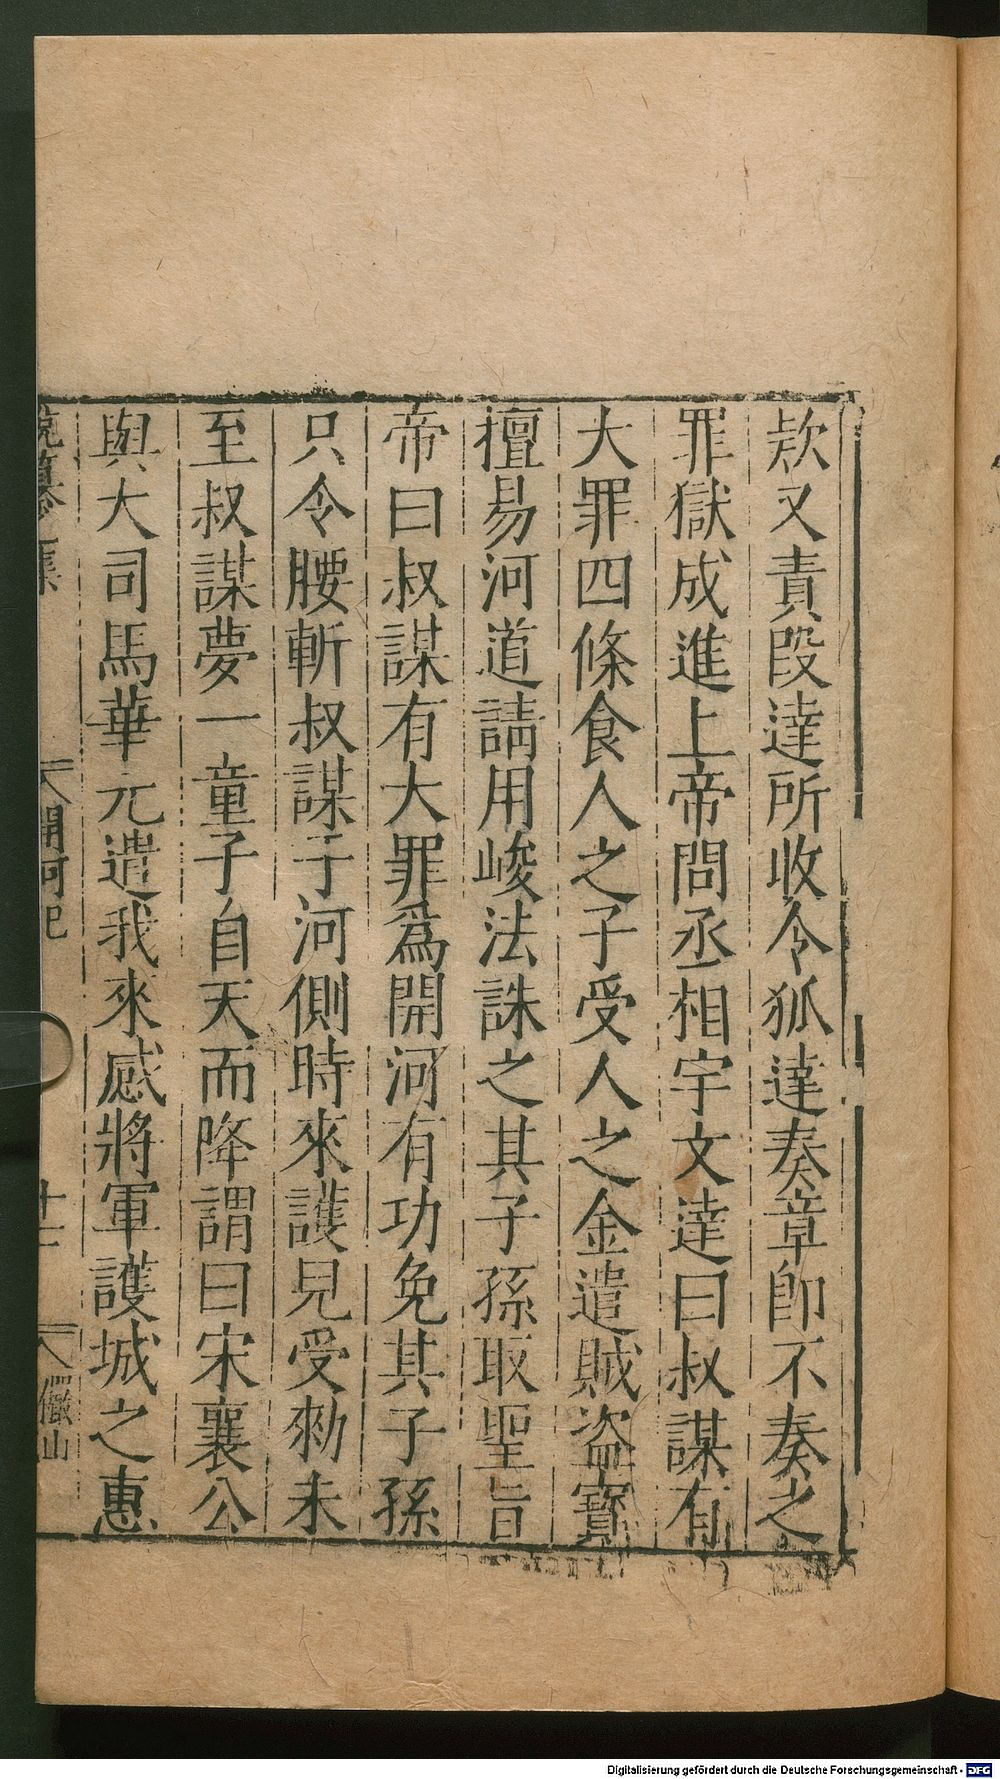 欵又責段達所收令狐達奏章即不奏之
罪獄成進上帝問丞相宇文達曰叔謀有
大罪四條食人之子受人之金遣賊盜寶
擅易河道請用峻法誅之其子孫取聖旨
帝曰叔謀有大罪爲開河有功免其子孫
只令腰斬叔謀于河側時來護兒受勑未
至叔謀夢一童子自天而降謂曰宋襄公
與大司馬華元遣我來感將軍護城之惠
說纂七集
開河記
十二
儼山
Digitalisierung gefördert durch die Deutsche Forschungsgemeinschaft - DFG